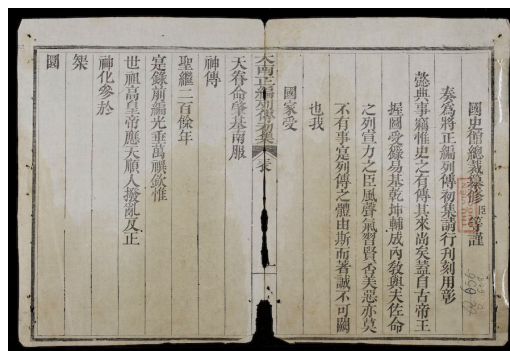 國史館總裁纂修臣等謹
奏爲將正編列傳初集請行刊刻用彰
懿典事竊惟史之有傳其來尚矣蓋自古帝王
握圖受籙易基乾坤輔成內敎與夫佐命
之列宣力之臣風聲氣習賢否美惡亦莫
不有事寔列傳之體由斯而著誠不可闕
也我
國家受
大南正編列傳初集 表
天眷命肇基南服
神傳
聖繼二百餘年
寔錄前編光垂萬禩欽惟
世祖高皇帝應天順人撥亂反正
神化參於
榘
圖